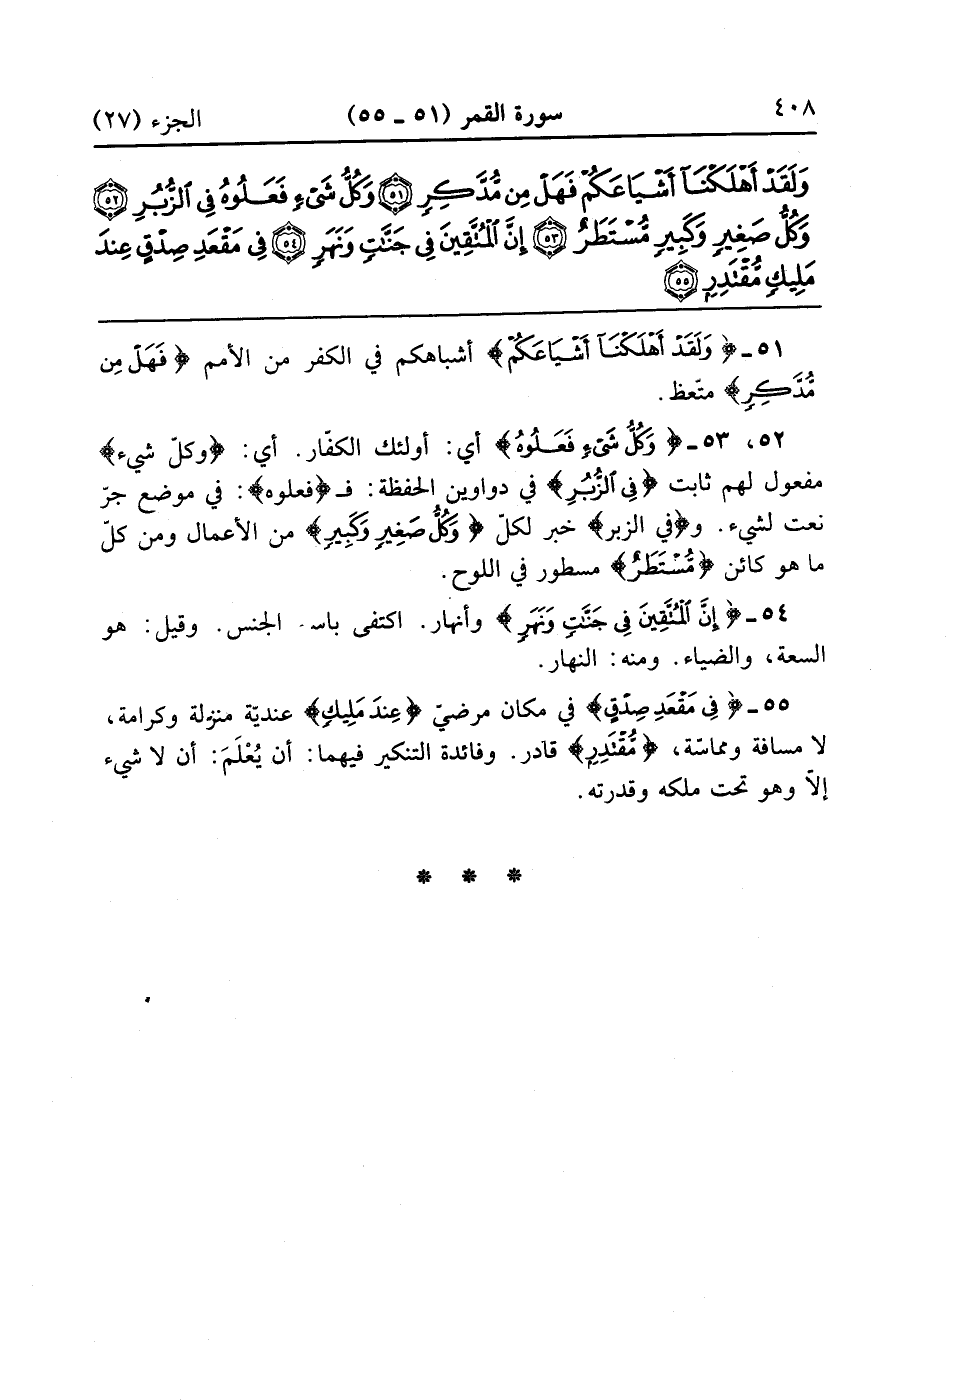 ٤٠٨ سورة القمر (٥١ ـ ٥٥) الجزء (٢٧)
وَلَقَدْ أَهْلَكْنَآ أَشْيَاعَكُمْ فَهَلْ مِن مُّدَّكِرٍ ٥١ وَكُلُّ شَىْءٍ فَعَلُوهُ فِى ٱلزُّبُرِ ٥٢
وَكُلُّ صَغِيرٍ وَكَبِيرٍ مُّسْتَطَرٌ ٥٣ إِنَّ ٱلْمُتَّقِينَ فِى جَنَّٰتٍ وَنَهَرٍ ٥٤ فِى مَقْعَدِ صِدْقٍ عِندَ
مَلِيكٍ مُّقْتَدِرٍ ٥٥
٥١ ـ ﴿وَلَقَدْ أَهْلَكْنَآ أَشْيَاعَكُمْ﴾ أشباهكم في الكفر من الأمم ﴿فَهَلْ مِن
مُّدَّكِرٍ﴾ متّعظ.
٥٢، ٥٣ ـ ﴿وَكُلُّ شَىْءٍ فَعَلُوهُ﴾ أي: أولئك الكفّار. أي: ﴿وكلّ شيء﴾
مفعول لهم ثابت ﴿فِى ٱلزُّبُرِ﴾ في دواوين الحفظة: فـ﴿فعلوه﴾: في موضع جرّ
نعت لشيء. و﴿في الزبر﴾ خبر لكلّ ﴿وَكُلُّ صَغِيرٍ وَكَبِيرٍ﴾ من الأعمال ومن كلّ
ما هو كائن ﴿مُّسْتَطَرٌ﴾ مسطور في اللوح.
٥٤ ـ ﴿إِنَّ ٱلْمُتَّقِينَ فِى جَنَّٰتٍ وَنَهَرٍ﴾ وأنهار. اكتفى الجنس. وقيل: هو
السعة، والضياء. ومنه: النهار.
٥٥ ـ ﴿فِى مَقْعَدِ صِدْقٍ﴾ في مكان مرضيّ ﴿عِندَ مَلِيكٍ﴾ عنديّة منزلة وكرامة،
لا مسافة ومماسّة، ﴿مُّقْتَدِرٍ﴾ قادر. وفائدة التنكير فيهما: أن يُعْلَمَ: أن لا شيء
إلاّ وهو تحت ملكه وقدرته.
* * *